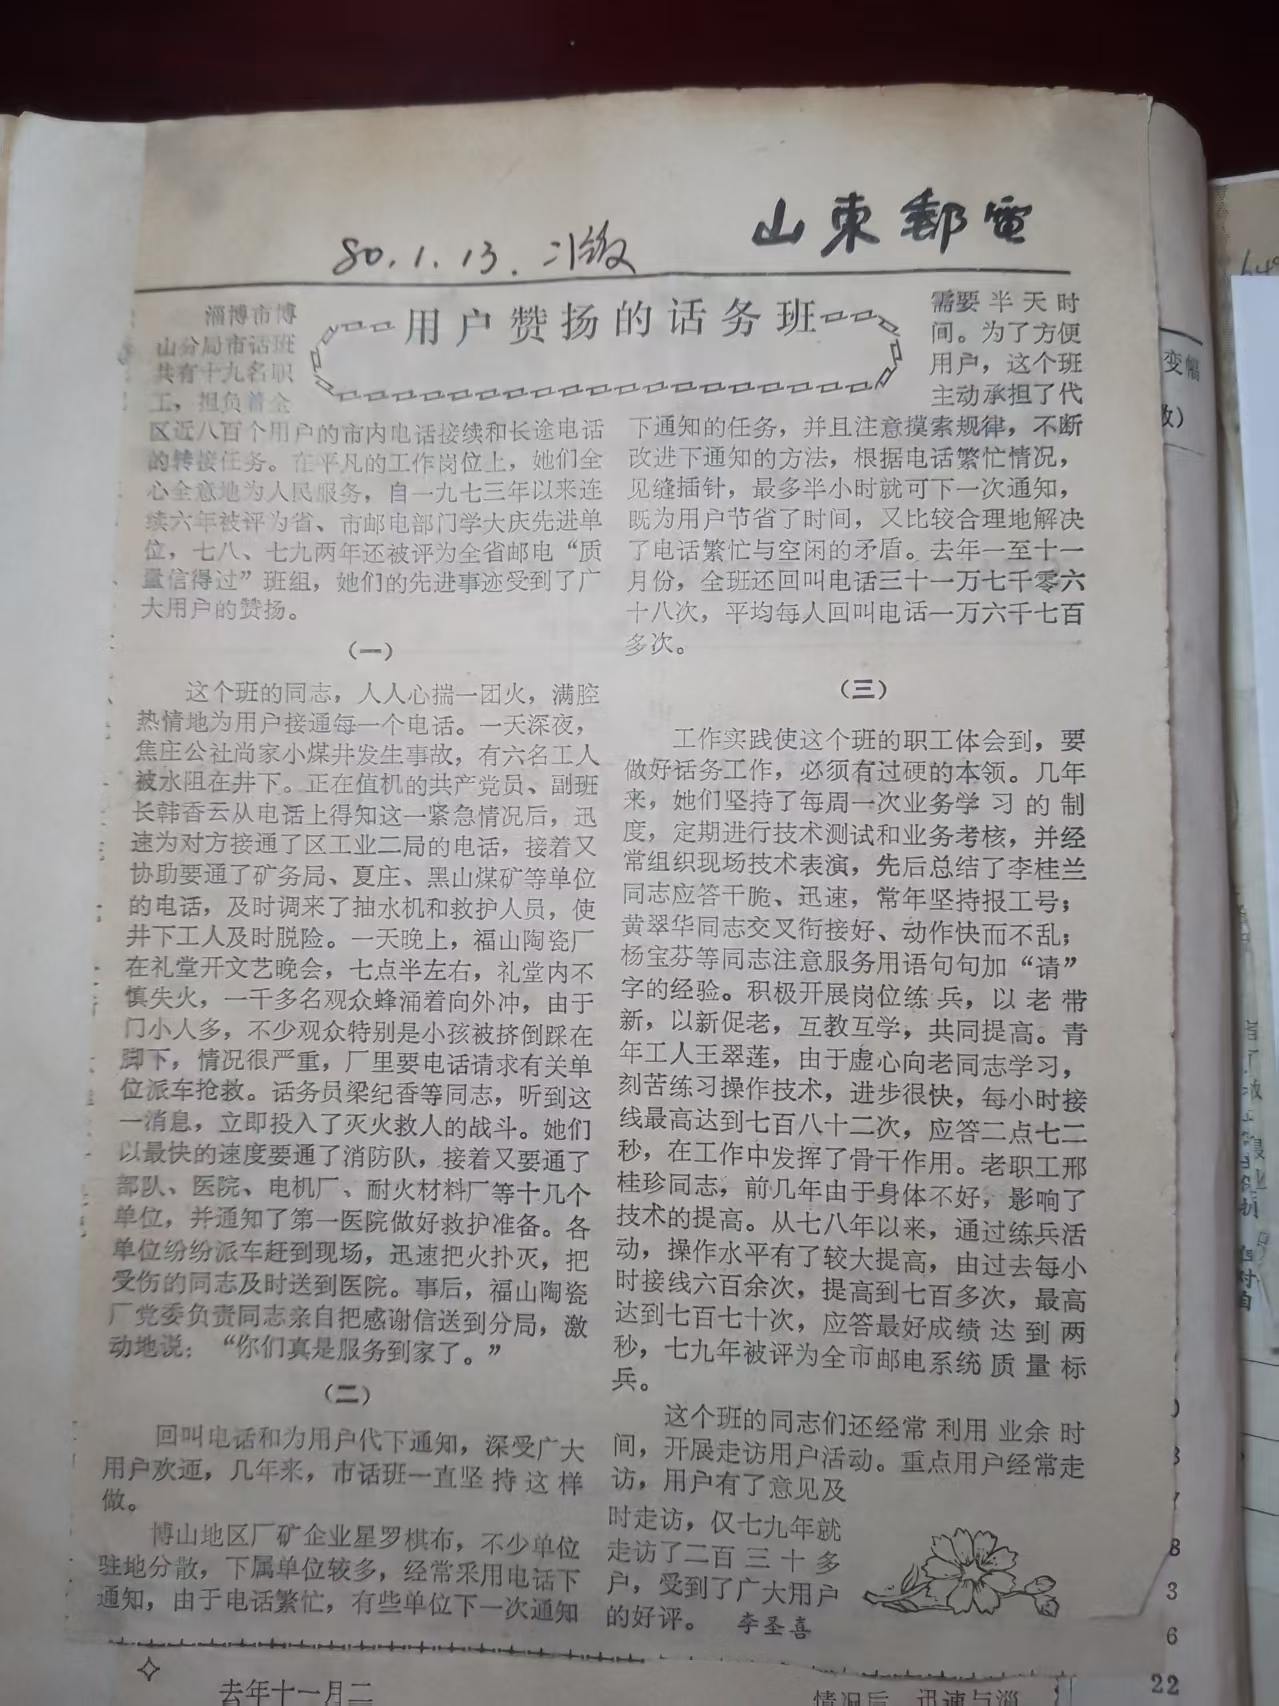 山東郵電
80.1.13.二版
用户赞扬的话务班
淄博市博
山分局市话班
共有十九名职
工，担负着全
区近八百个用户的市内电话接续和长途电话
的转接任务。在平凡的工作岗位上，她们全
心全意地为人民服务，自一九七三年以来连
续六年被评为省、市邮电部门学大庆先进单
位，七八、七九两年还被评为全省邮电“质
量信得过”班组，她们的先进事迹受到了广
大用户的赞扬。
（一）
这个班的同志，人人心揣一团火，满腔
热情地为用户接通每一个电话。一天深夜，
焦庄公社尚家小煤井发生事故，有六名工人
被水阻在井下。正在值机的共产党员、副班
长韩香云从电话上得知这一紧急情况后，迅
速为对方接通了区工业二局的电话，接着又
协助要通了矿务局、夏庄、黑山煤矿等单位
的电话，及时调来了抽水机和救护人员，使
井下工人及时脱险。一天晚上，福山陶瓷厂
在礼堂开文艺晚会，七点半左右，礼堂内不
慎失火，一千多名观众蜂涌着向外冲，由于
门小人多，不少观众特别是小孩被挤倒踩在
脚下，情况很严重，厂里要电话请求有关单
位派车抢救。话务员梁纪香等同志，听到这
一消息，立即投入了灭火救人的战斗。她们
以最快的速度要通了消防队，接着又要通了
部队、医院、电机厂、耐火材料厂等十几个
单位，并通知了第一医院做好救护准备。各
单位纷纷派车赶到现场，迅速把火扑灭，把
受伤的同志及时送到医院。事后，福山陶瓷
厂党委负责同志亲自把感谢信送到分局，激
动地说：“你们真是服务到家了。”
（二）
回叫电话和为用户代下通知，深受广大
用户欢迎，几年来，市话班一直坚持这样
做。
博山地区厂矿企业星罗棋布，不少单位
驻地分散，下属单位较多，经常采用电话下
通知，由于电话繁忙，有些单位下一次通知
需要半天时
间。为了方便
用户，这个班
主动承担了代
下通知的任务，并且注意摸索规律，不断
改进下通知的方法，根据电话繁忙情况，
见缝插针，最多半小时就可下一次通知，
既为用户节省了时间，又比较合理地解决
了电话繁忙与空闲的矛盾。去年一至十一
月份，全班还回叫电话三十一万七千零六
十八次，平均每人回叫电话一万六千七百
多次。
（三）
工作实践使这个班的职工体会到，要
做好话务工作，必须有过硬的本领。几年
来，她们坚持了每周一次业务学习的制
度，定期进行技术测试和业务考核，并经
常组织现场技术表演，先后总结了李桂兰
同志应答干脆、迅速，常年坚持报工号；
黄翠华同志交叉衔接好、动作快而不乱；
杨宝芬等同志注意服务用语句句加“请”
字的经验。积极开展岗位练兵，以老带
新，以新促老，互教互学，共同提高。青
年工人王翠莲，由于虚心向老同志学习，
刻苦练习操作技术，进步很快，每小时接
线最高达到七百八十二次，应答二点七二
秒，在工作中发挥了骨干作用。老职工邢
桂珍同志，前几年由于身体不好，影响了
技术的提高。从七八年以来，通过练兵活
动，操作水平有了较大提高，由过去每小
时接线六百余次，提高到七百多次，最高
达到七百七十次，应答最好成绩达到两
秒，七九年被评为全市邮电系统质量标
兵。
这个班的同志们还经常利用业余时
间，开展走访用户活动。重点用户经常走
访，用户有了意见及
时走访，仅七九年就
走访了二百三十多
户，受到了广大用户
的好评。 李圣喜
去年十一月二
情况后，迅速与淄
变幅
数）
8
3
6
22